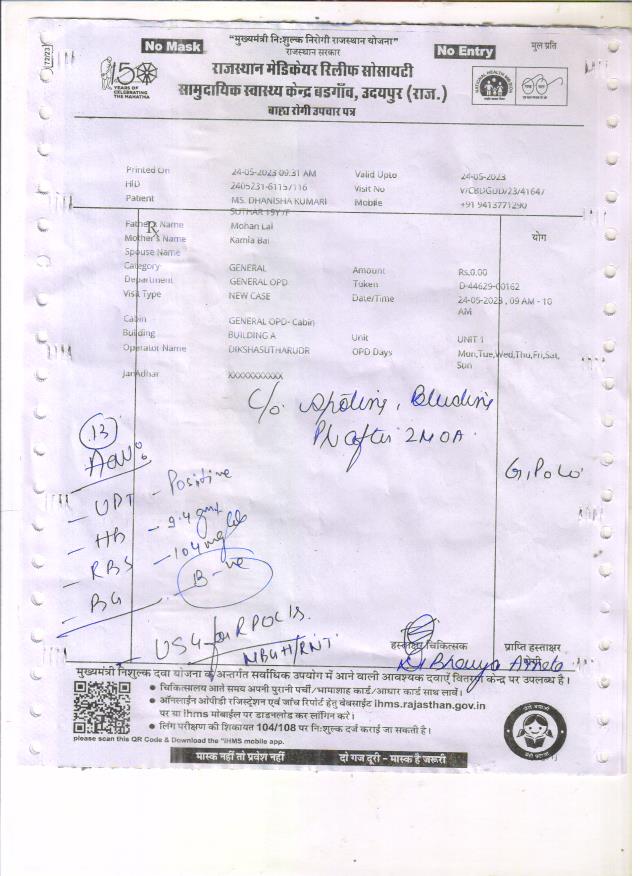 172/23
No Mask
"मुख्यमंत्री नि:शुल्क निरोगी राजस्थान योजना"
राजस्थान सरकार
No Entry
मुल प्रति
150
YEARS OF
CELEBRATING
THE MAHATMA
राजस्थान मेडिकेयर रिलीफ सोसायटी
सामुदायिक स्वास्थ्य केन्द्र बडगाँव, उदयपुर (राज.)
बाह्य रोगी उपचार पत्र
NATIONAL HEALTH MISSION
Printed On 24-05-2023 09:31 AM Valid Upto 24-05-2023
HID 2405231-61157116 Visit No V/CBDGUD/23/41647
Patient MS. DHANISHA KUMARI Mobile +91 9413771290
SUTHAR 19Y /F
Father Name Mohan Lal
R
योग
Mother's Name Kamla Bai
Spouse Name
Category GENERAL Amount Rs.0.00
Department GENERAL OPD Token D-44629-00162
Visit Type NEW CASE Date/Time 24-05-2023 , 09 AM - 10
AM
Cabin GENERAL OPD- Cabin
Building BUILDING A Unit UNIT 1
Operator Name DIKSHASUTHARUDR OPD Days Mon,Tue,Wed,Thu,Fri,Sat,
Sun
JanAdhar XXXXXXXXXXX
C/o. Spoting, Bleeding
PV after 2M OA.
13
Adv:
G1P0L0
- UPT - Positive
- HB - 9.4 gm%
- RBS - 104 mg/dl
- BG - B-ve
- USG for RPOCIS.
MBGH/RNT.
हस्ताक्षर चिकित्सक
प्राप्ति हस्ताक्षर
Dr Bhavya Ameta
मुख्यमंत्री निःशुल्क दवा योजना के अन्तर्गत सर्वाधिक उपयोग में आने वाली आवश्यक दवाऐं वितरण केन्द्र पर उपलब्ध है।
• चिकित्सालय आते समय अपनी पुरानी पर्ची/भामाशाह कार्ड/आधार कार्ड साथ लावें।
• ऑनलाईन ओपीडी रजिस्ट्रेशन एवं जांच रिपोर्ट हेतु वेबसाईट ihms.rajasthan.gov.in
पर या ihms मोबाईल पर डाउनलोड कर लॉगिन करे।
• लिंग परीक्षण की शिकायत 104/108 पर नि:शुल्क दर्ज कराई जा सकती है।
please scan this QR Code & Download the "IHMS mobile app.
मास्क नहीं तो प्रवेश नहीं दो गज दूरी - मास्क है जरूरी